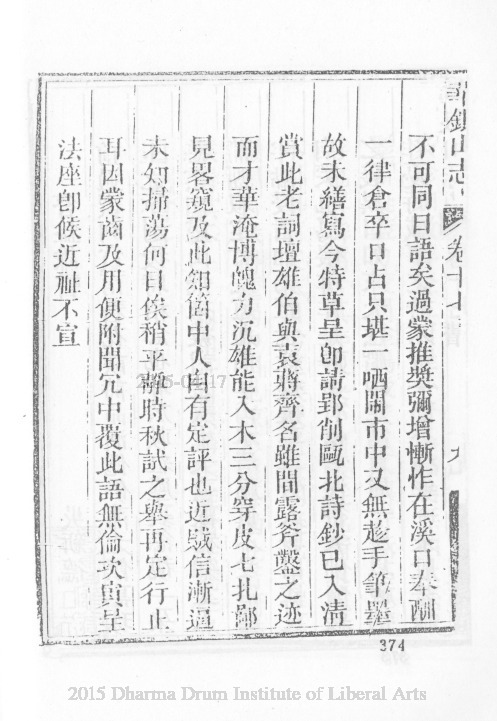 山志 卷十七 九
不可同日語矣過蒙推獎彌增慚怍在溪口奉酬
一律倉卒口占只堪一哂鬧市中又無趁手筆墨
故未繕寫今特草呈卽請郢削甌北詩鈔已入淸
賞此老詞壇雄伯與袁蔣齊名雖間露斧鑿之迹
而才華淹博魄力沉雄能入木三分穿皮七扎鄙
見畧窺及此知箇中人自有定評也近賊信漸逼
未知掃蕩何日俟稍平靜時秋試之舉再定行止
耳因蒙齒及用便附聞冗中覆此語無倫次寅呈
法座卽候近祉不宣
374
2015 Dharma Drum Institute of Liberal Arts